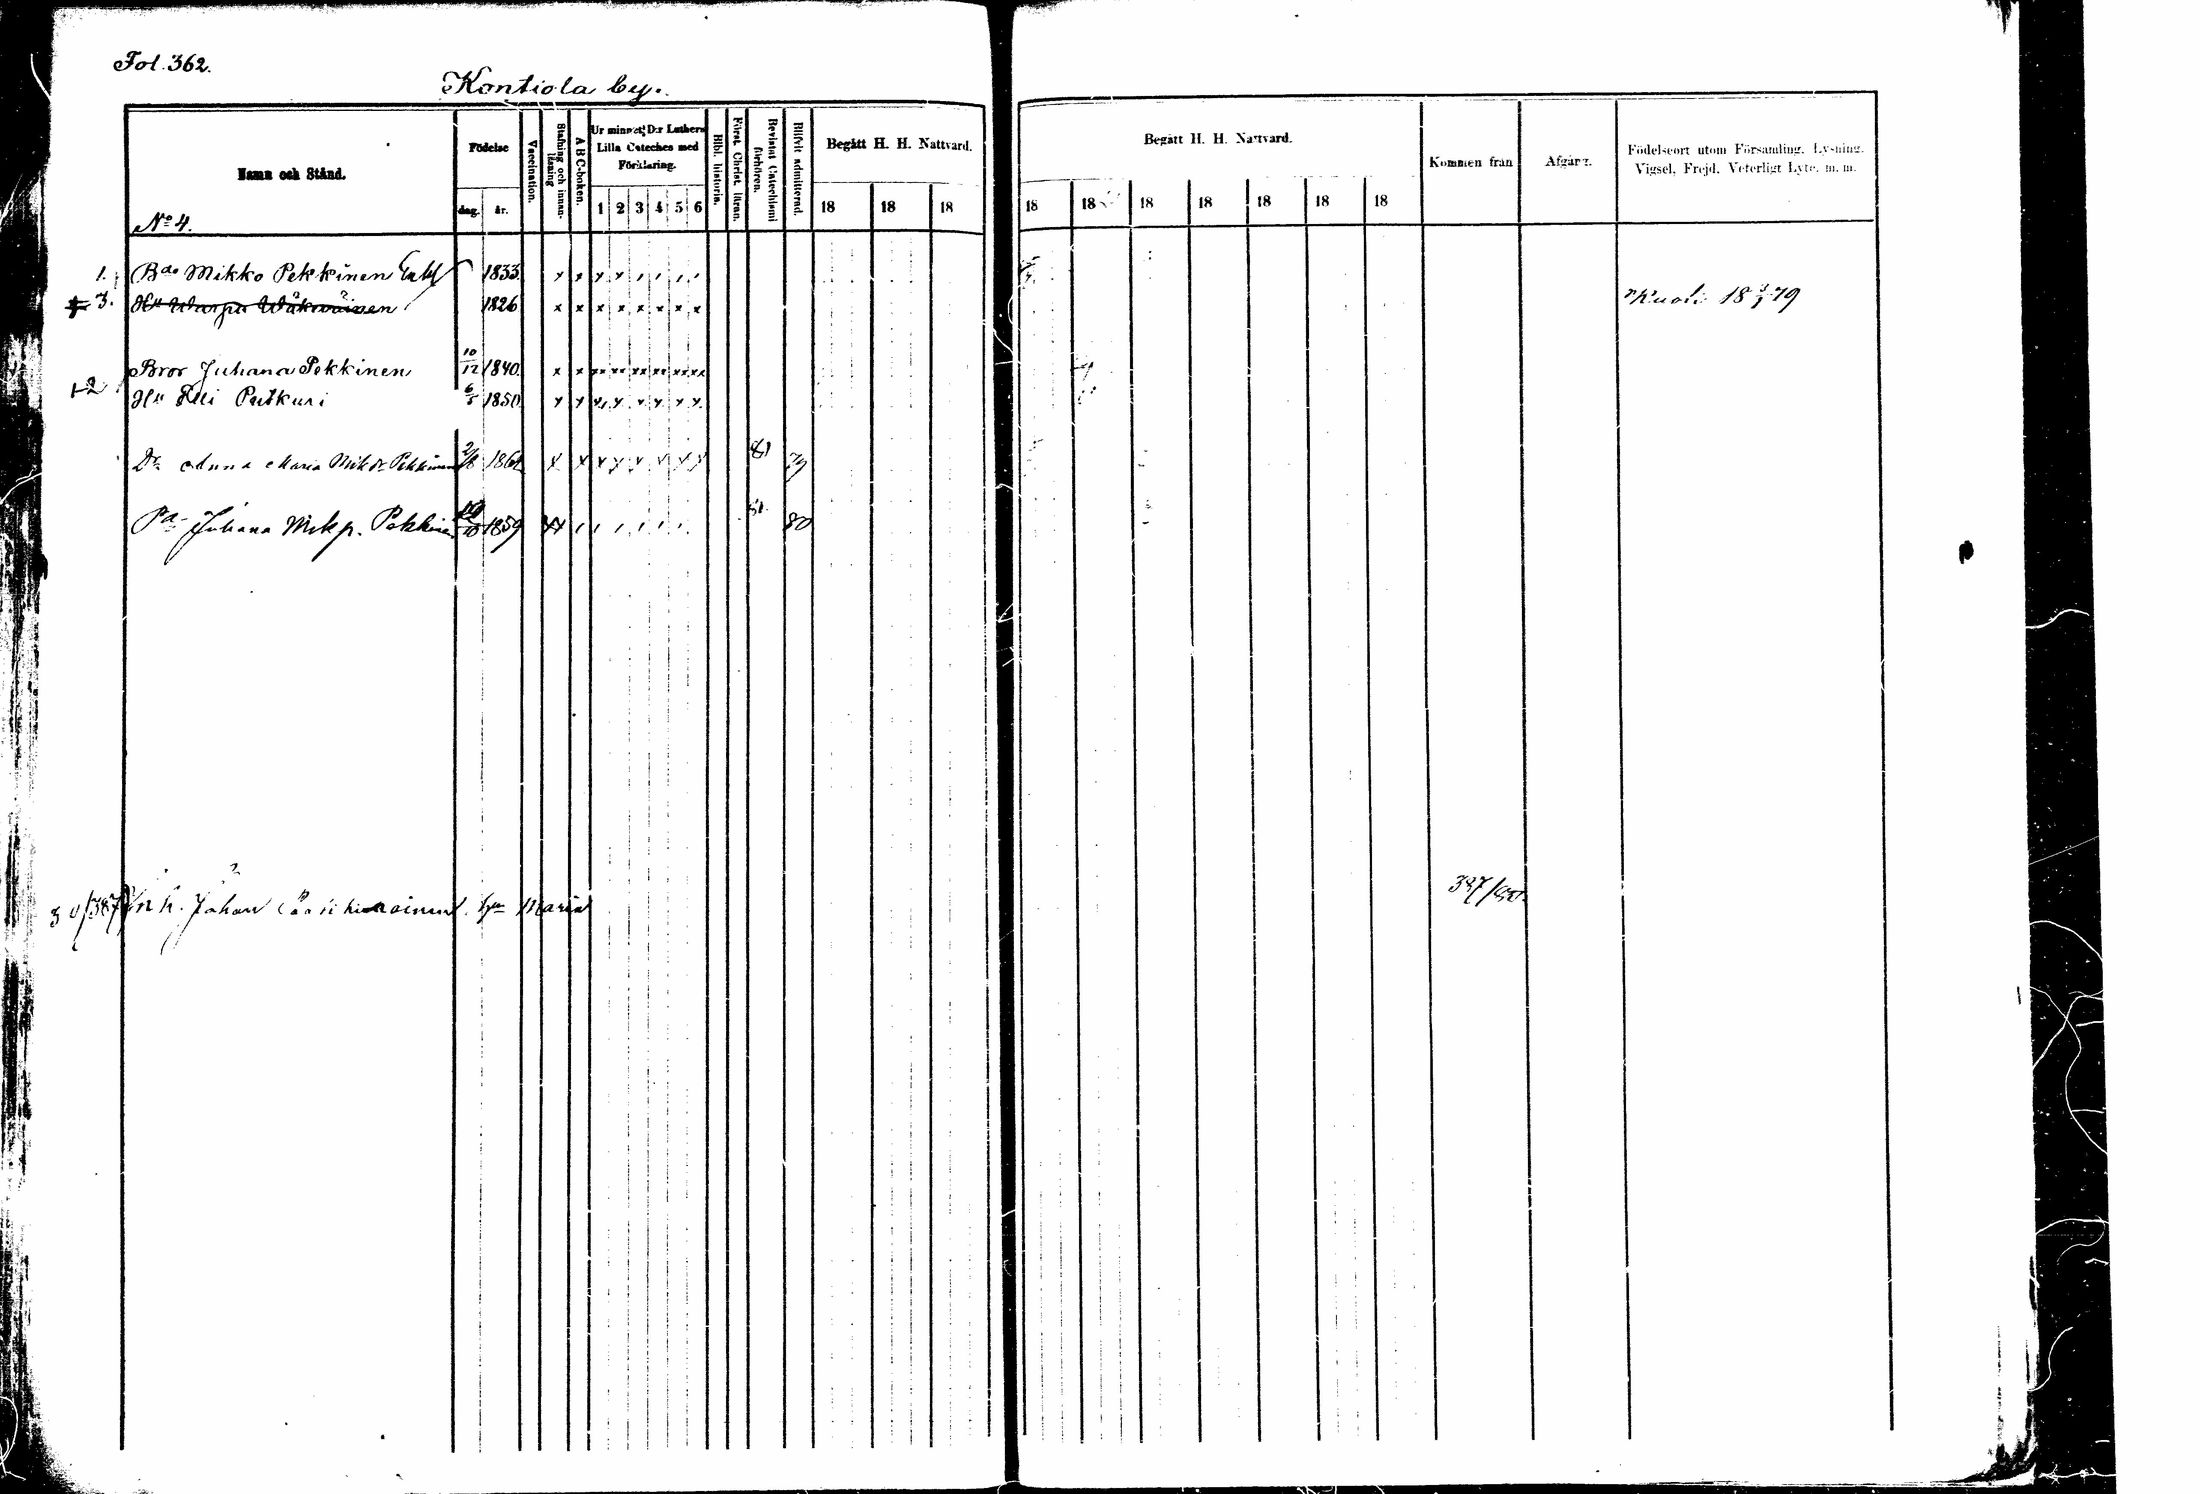 Fol. 362.
Kontiola by.
Namn och Stånd.
Födelse
dag. år.
Vaccination.
Stafning och innan-läsning
A B C-boken.
Ur minnet: D:r Luthers
Lilla Cateches med
Förklaring.
1 2 3 4 5 6
Bibl. historia.
Först. Christ. läran.
Bevistat Catechismi förhören.
Blifvit admitterad.
Begått H. H. Nattvard.
18 18 18
Begått H. H. Nattvard.
18 18 18 18 18 18 18
Kommen från
Afgång.
Födelseort utom Församling, Lysning,
Vigsel, Frejd, Veterligt Lyte, m. m.
No 4.
1. Bde Mikko Pekkinen Enkl 1833 x x x x
3. Hu Warpu Wäkeväinen 1826 x x x x x x x x Kuoli 18 79
Bror Juhana Pekkinen 10/12 1840 x x xx xx xx xx xx xx
2 Hu Putkuri 6/5 1850 x x x x x x x x
Dr Anna Maria Mikdr Pekkinen 2/8 186 x x x x x x x x 81 79
Pa Juhana Mikp. Pekkinen 1859 80
Inh. Johan hu Maria 387/80.